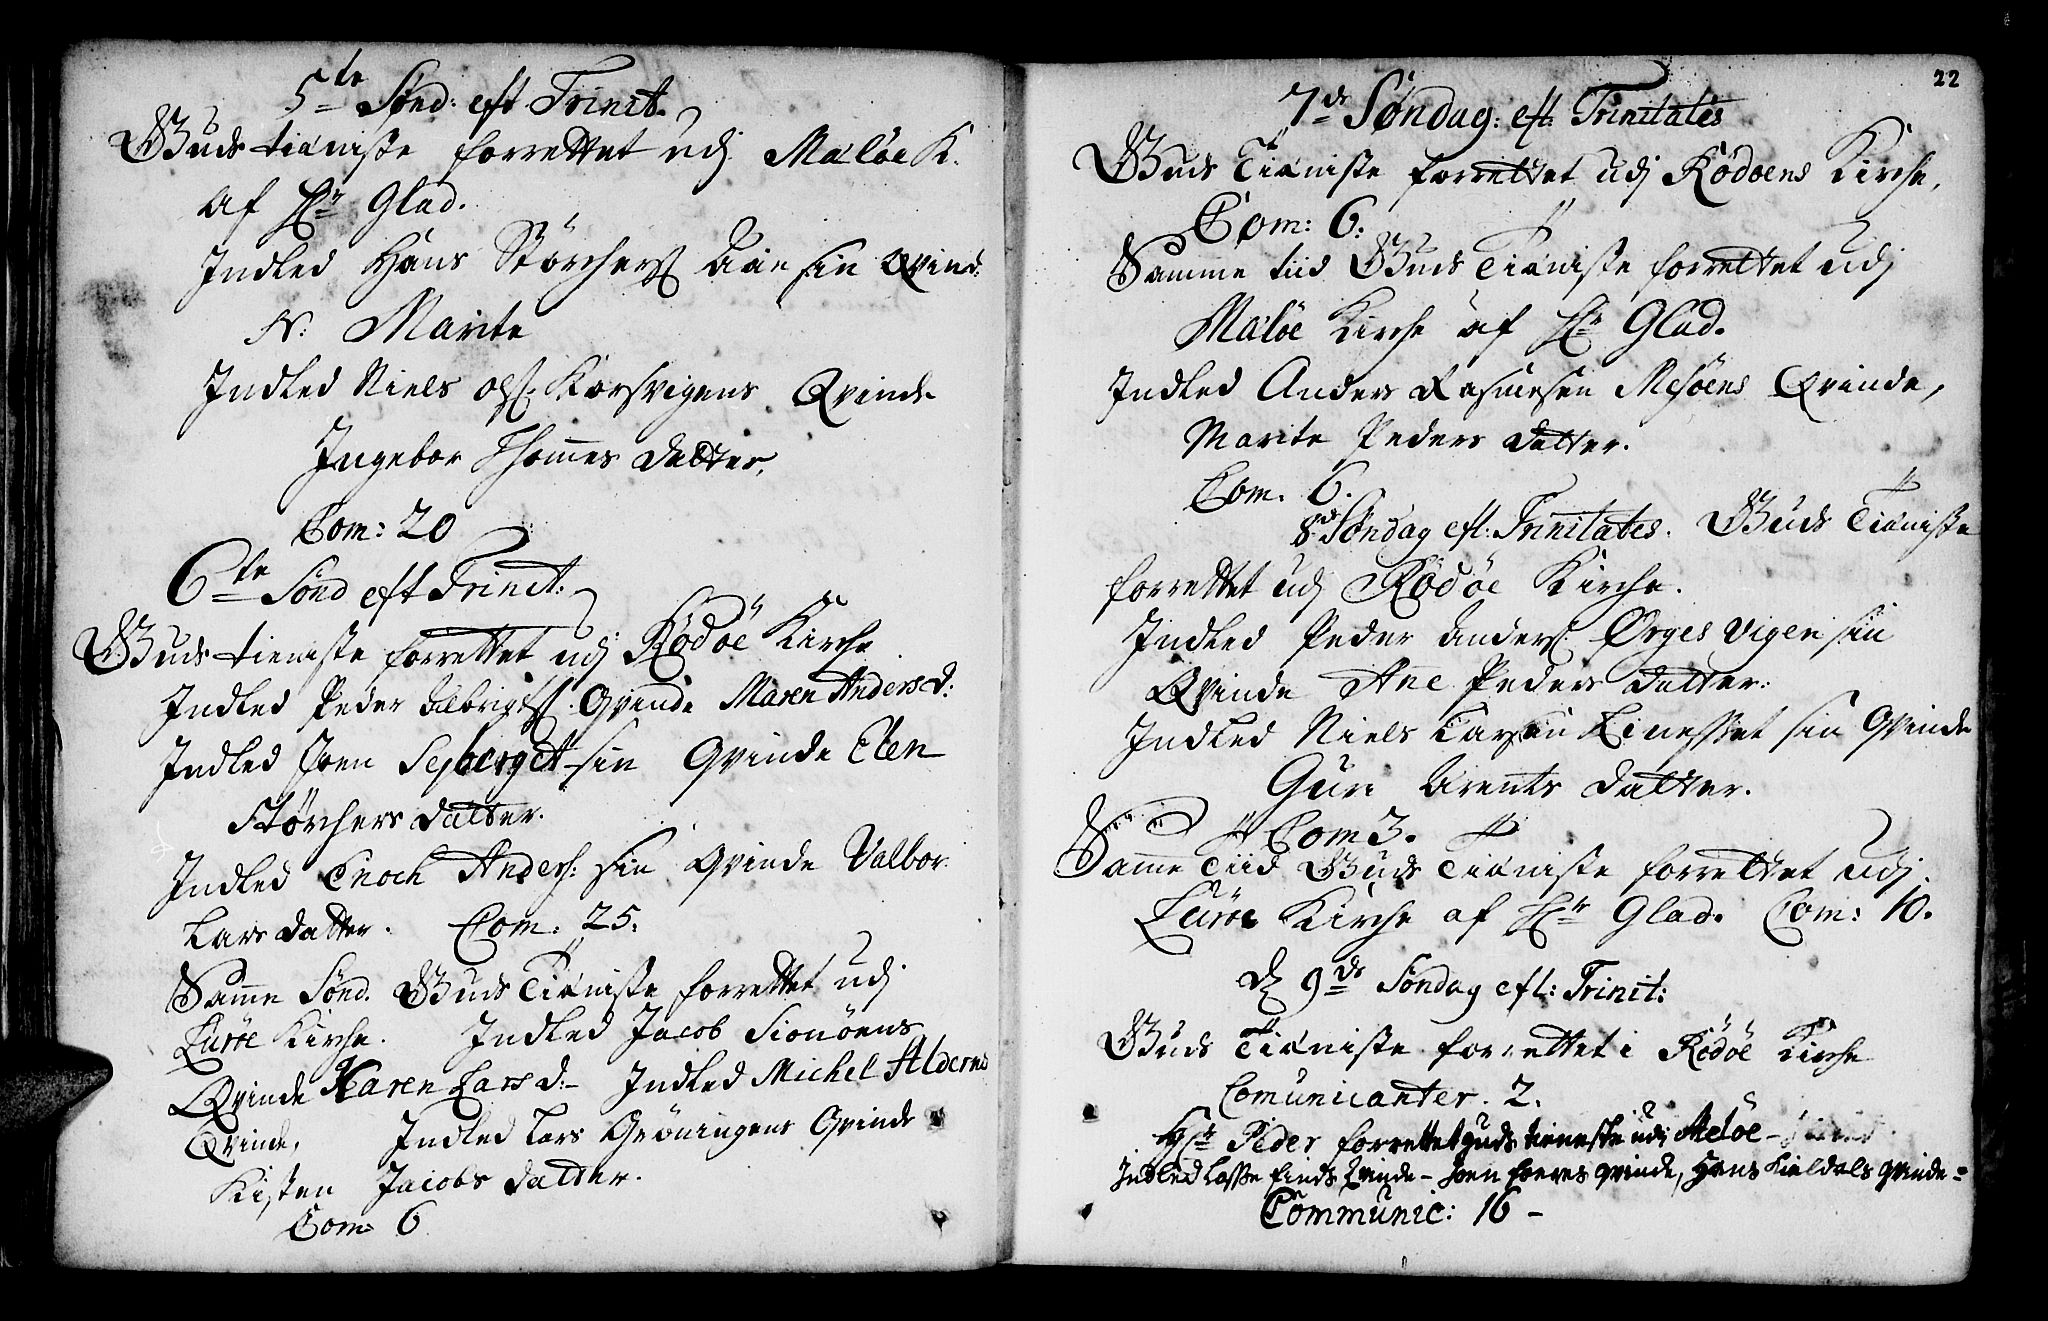 5te Sønd: eft Trinit.
Guds tieniste forrettet udj Maløe K.
af Hr Glad.
Indled Hans Størchers: Aae sin Qvind:
N: Marite
Indled Niels Ols: Korsvigens Qvinde
Ingebor Thommes datter.
Com: 20
6te Sønd eft Trinit:
Guds tieniste forrettet udj Rødøe Kirche
Indled Peder Albrigts: Qvinde Maren Andersd:
Indled Joen Sejberget sin Qvinde Elen
Størchers datter.
Indled Enoch Anders: sin Qvinde Valbor
Lars datter. Com: 25.
Samme Sønd. Guds Tieniste forrettet udj
Lurøe Kirche. Indled Jacob Sionøens
Qvinde Karen Lars d:- Indled Michel Alderens
Qvinde, Indled Lars Grøningens Qvinde
Kisten Jacobs datter.
Com: 6
22
7de Søndag: eft: Trinitates
Guds Tieniste forrettet udj Rødøens Kirche,
Com: 6.
Samme tiid Guds Tieniste forrettet udj
Maløe Kirche af Hr Glad.
Indled Anders Rasmesen Mesøens Qvinde,
Marite Peders datter.
Com. 6.
8de Søndag eft: Trinitates. Guds Tieniste
forrettet udj Rødøe Kirche.
Indled Peder Anders: Ørges Vigen sin
Qvinde Ane Peders datter:
Indled Niels Larsen Linesset sin Qvinde
Guri Arents datter.
Com 3.
Samme Tiid Guds Tieniste forrettet udj
Lurøe Kirche af Hr Glad. Com: 10.
D 9de Søndag eft: Trinit:
Guds Tieniste forrettet i Rødøe Kirche
Comunicanter. 2.
Hr Peder forrettet guds tieneste udj Meløe -
Indled Lasse Finds Qvinde - Joen Qvinde, Hans Kieldals Qvinde-
Communic: 16 -